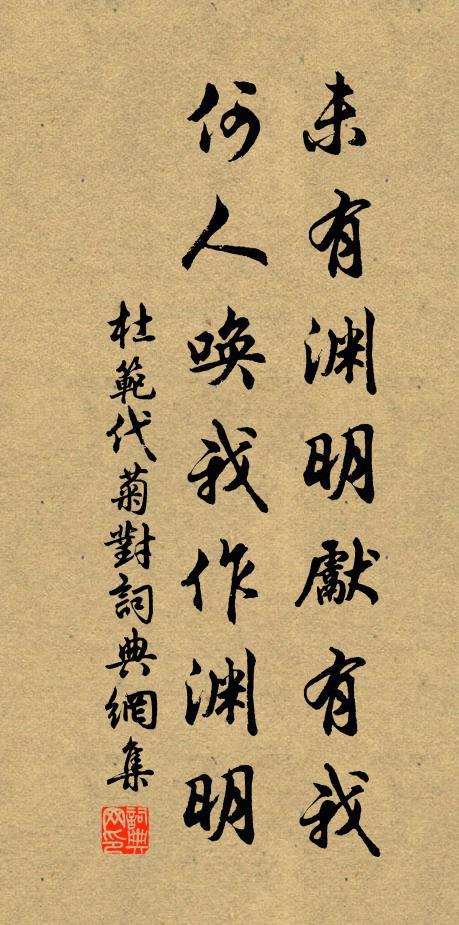 未有渊明獻有我
何人唤我作渊明
杜範代菊對詞典網集
詞典网印